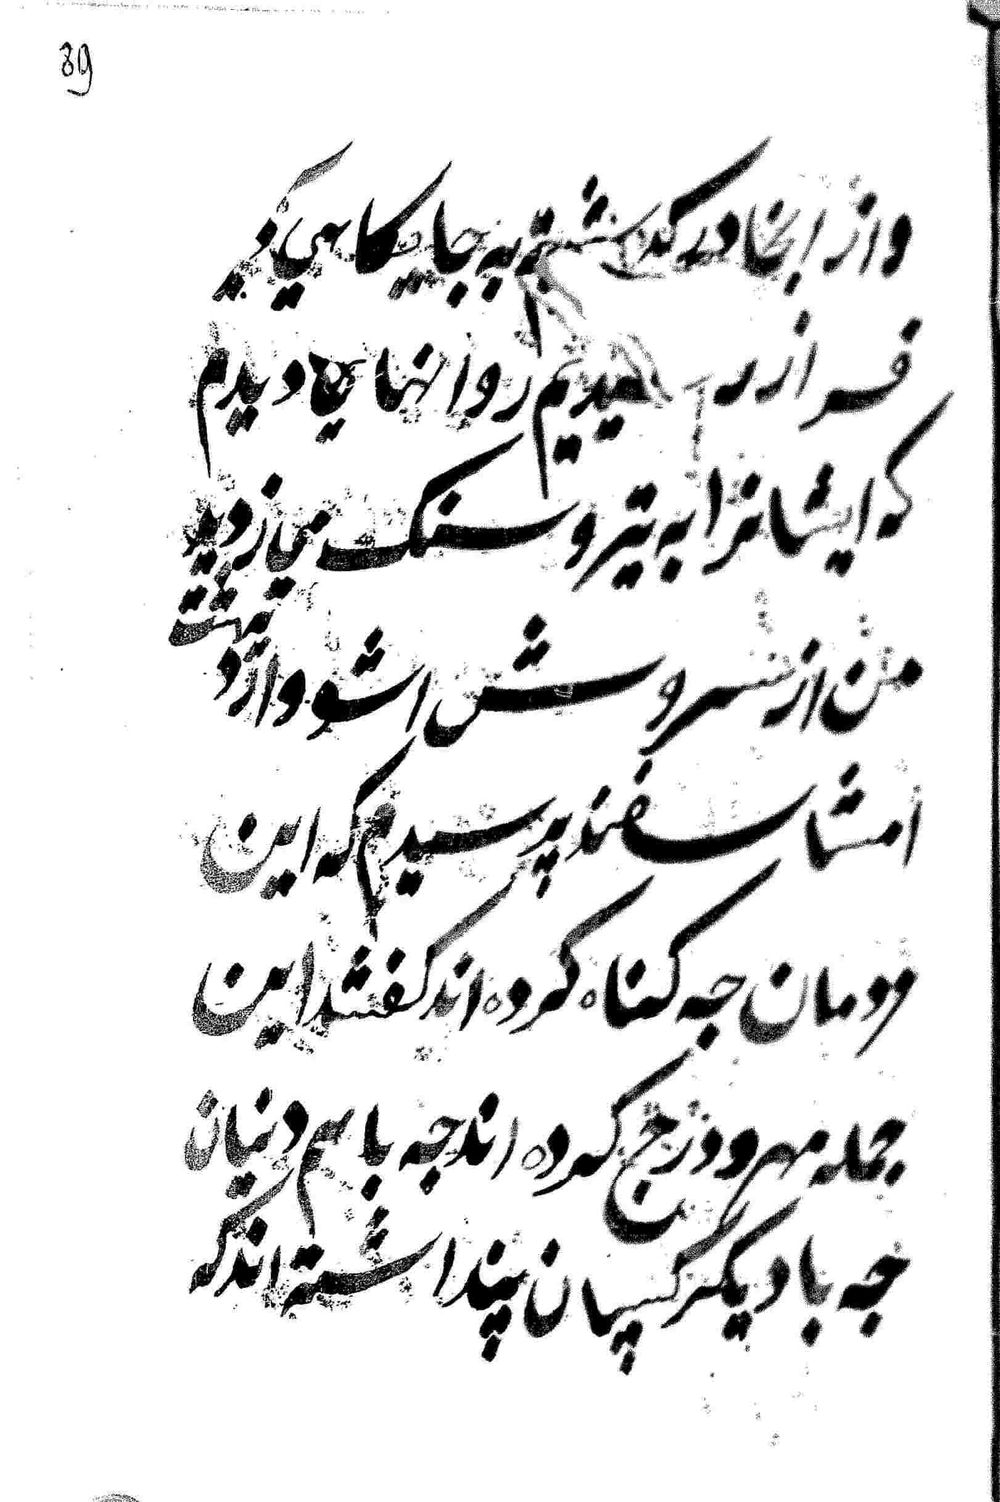 89
واز انجا در کدشتیم به جایکاهی دیر
فراز رسیدیم روانها یی دیدم
که ایشانرا به تیر و سنک میازدید
من از سروش اشو و اردیبهشت
امشاسفند پرسیدم که این
مردمان جه کناه کرده اند کفتند این
جمله مهر ودرج کرده اند جه با هم دنیان
جه با دیکر کسهان پنداشته اند که